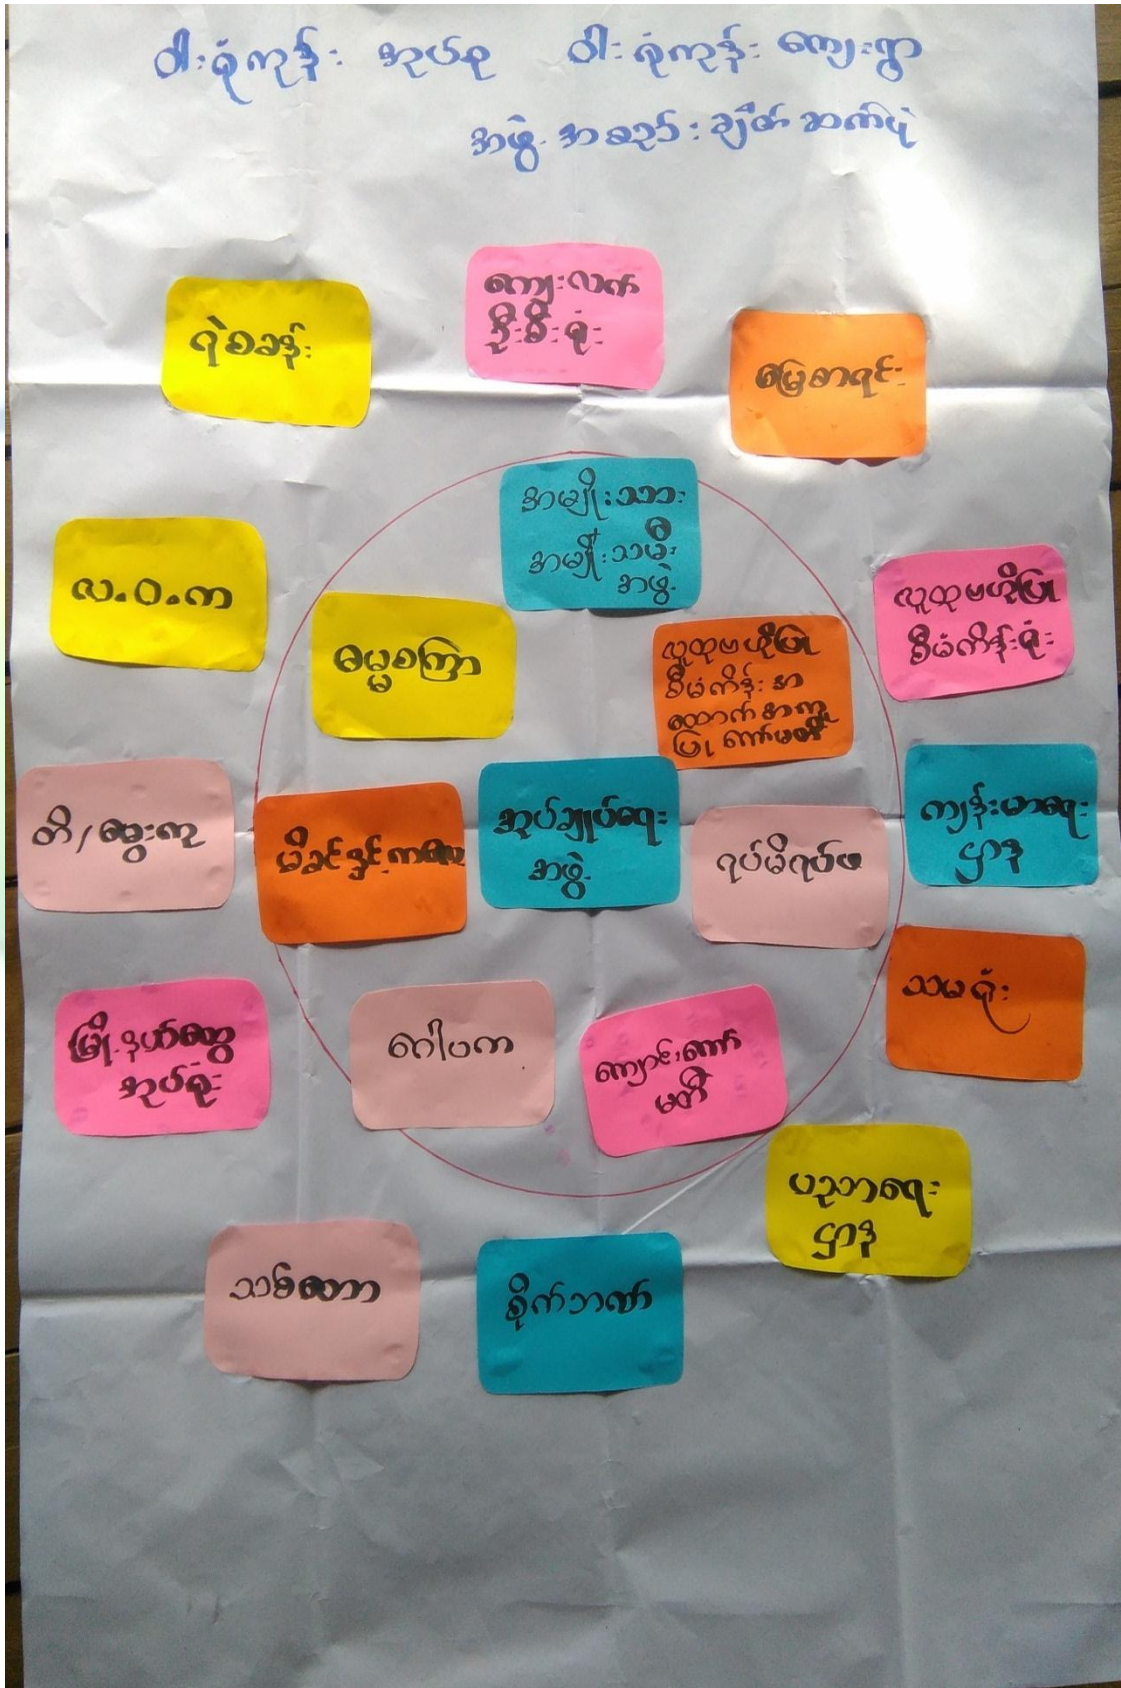 ဝါးရုံကုန်း အုပ်စု ဝါးရုံကုန်း ကျေးရွာ
အဖွဲ့အစည်း ချိတ်ဆက်ပုံ
ကျေးလက်
ဦးစီးရုံး
ရဲစခန်း
မြေစာရင်း
အမျိုးသား
အမျိုးသမီး
အဖွဲ့
လ.ဝ.က
လူထုဗဟိုပြု
စီမံကိန်းရုံး
ဓမ္မစကြာ
လူထုဗဟိုပြု
စီမံကိန်း အ
ထောက်အကူ
ပြု ကော်မတီ
တီ/ဆွေးကု
မိခင်နှင့်ကလေး
အုပ်ချုပ်ရေး
အဖွဲ့
ရပ်မိရပ်ဖ
ကျန်းမာရေး
ဌာန
မြို့နယ်ထွေ
အုပ်ရုံး
ဂေါပက
ကျောင်းကော်
မတီ
သမရုံး
ပညာရေး
ဌာန
သစ်တော
စိုက်ဘဏ်